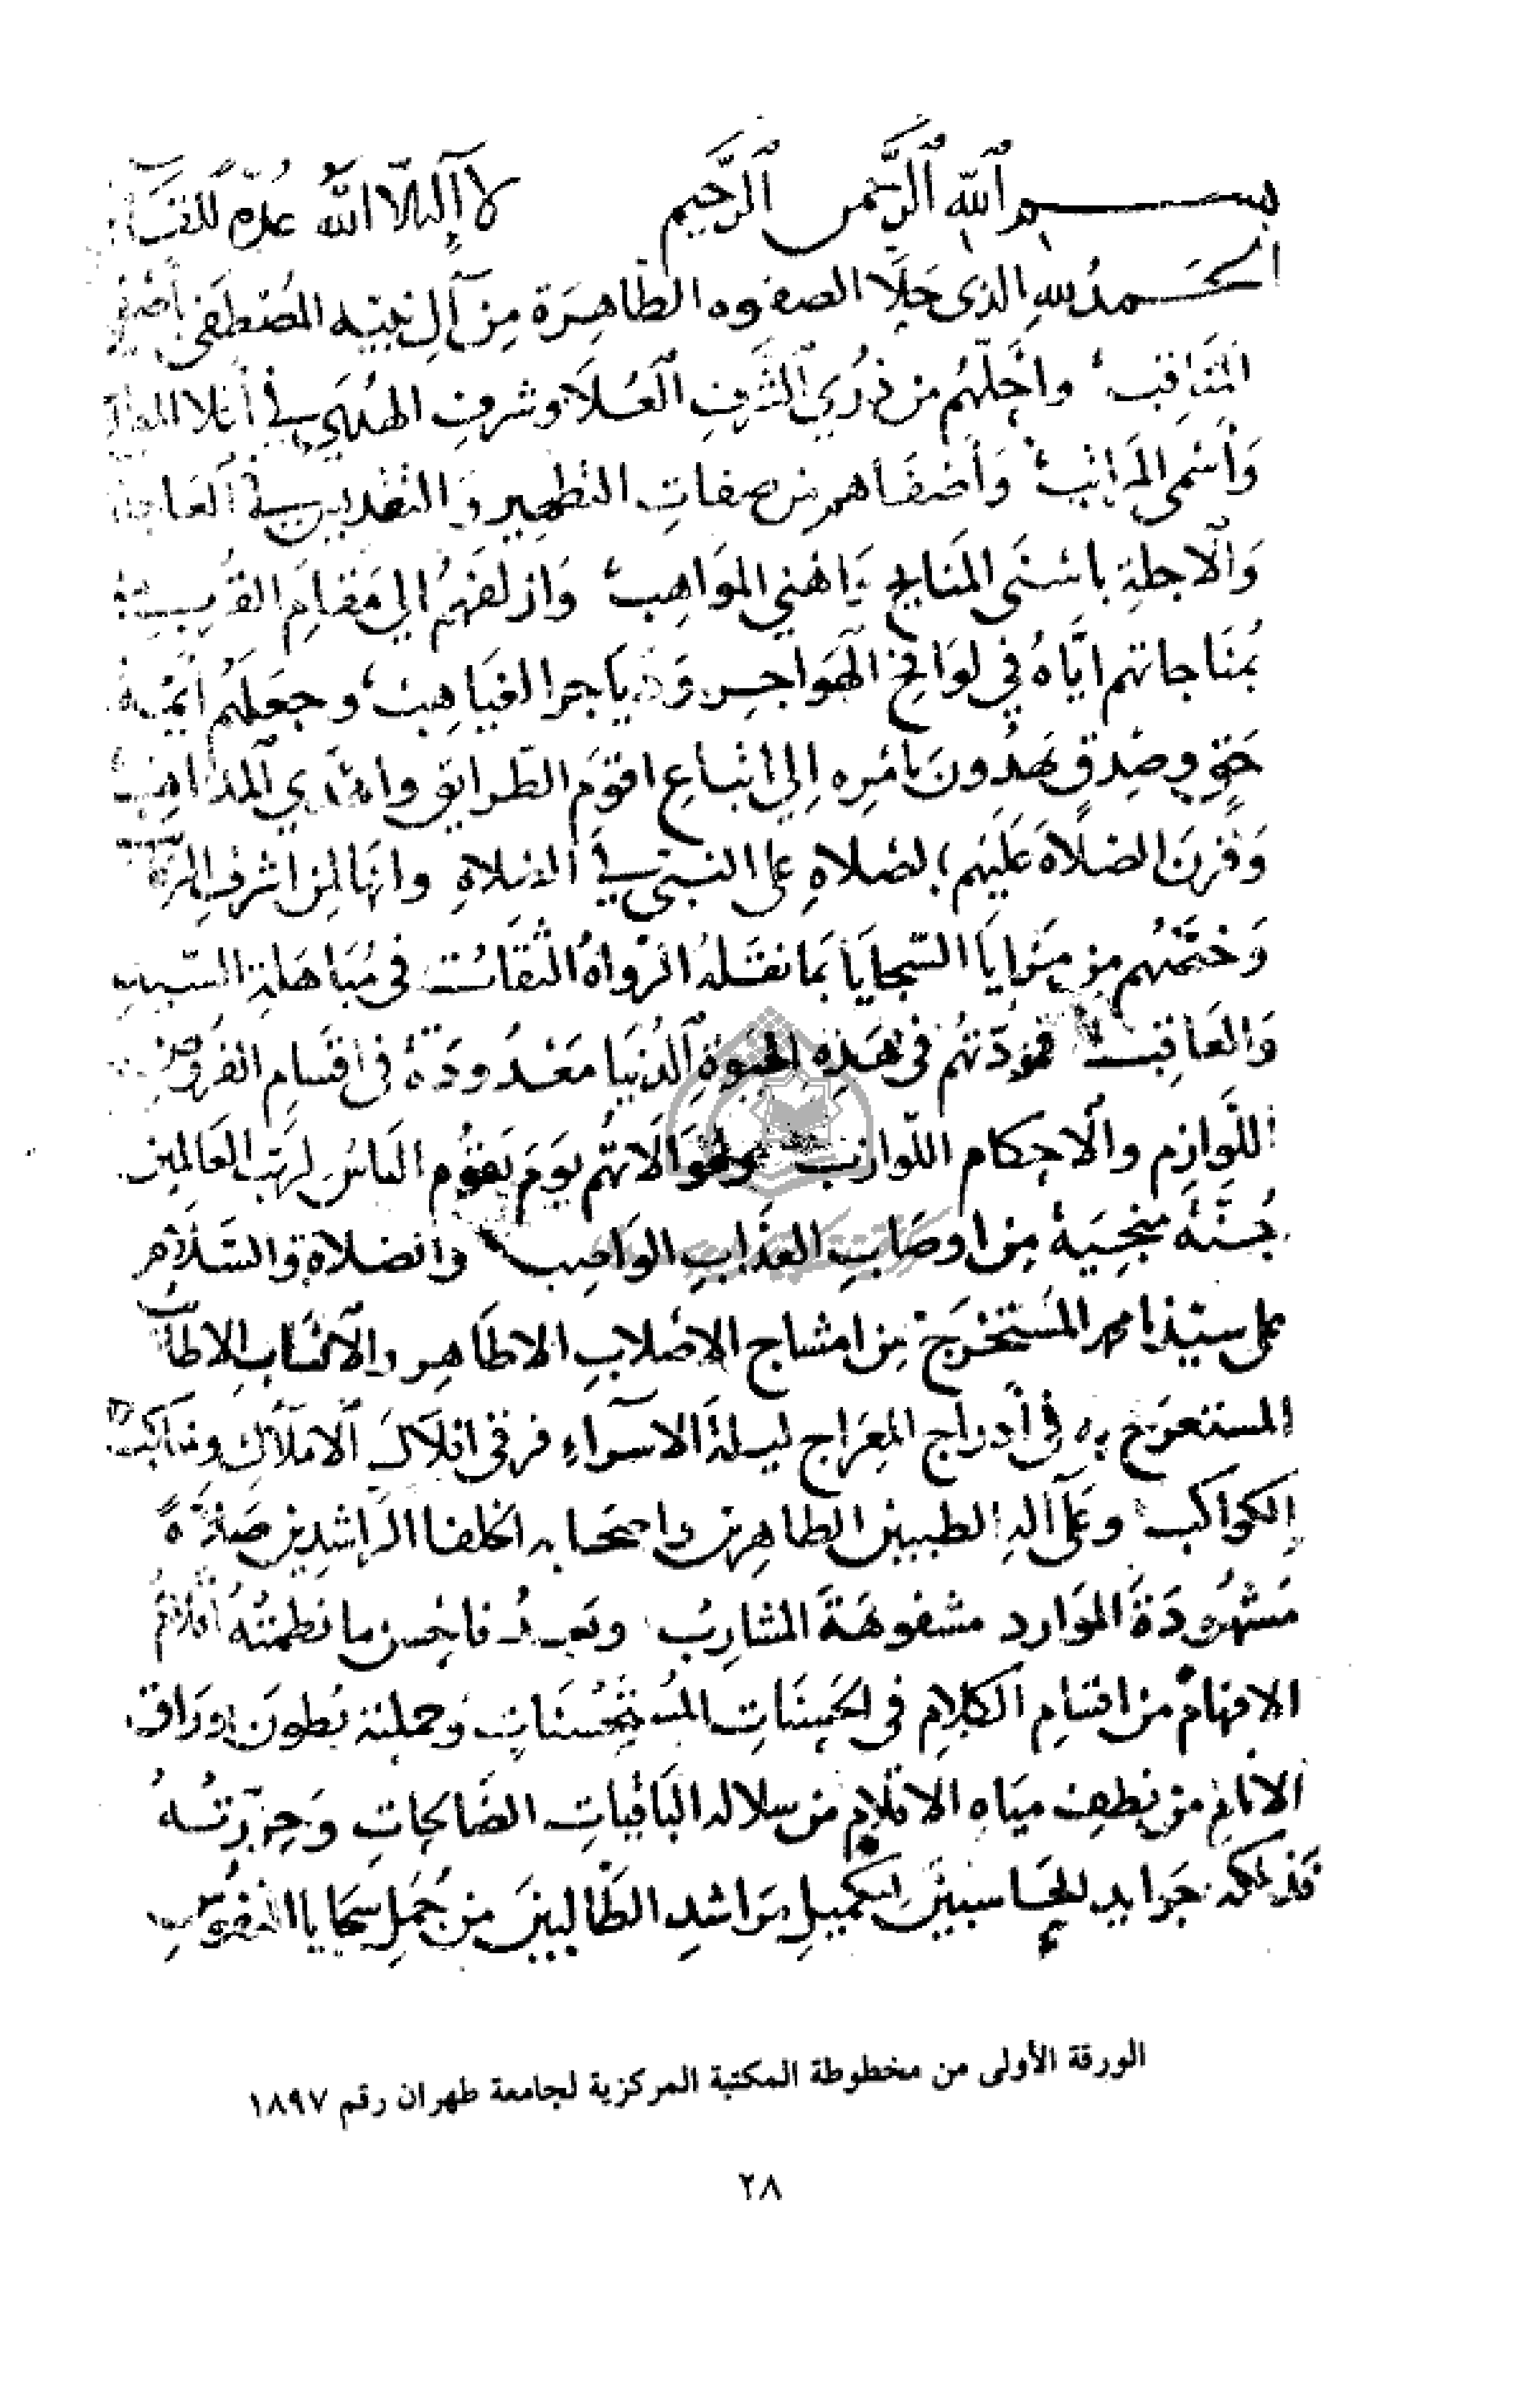 بسم الله الرحمن الرحيم لا إله إلا الله عدة للقاء
الحمد لله الذي حلا الصفوة الطاهرة من آل نبيه المصطفى بأصفى
المناقب وأحلهم من ذرى الشرف العلا وشرف الهدى في أعلا
وأسمى المراتب وأصفاهم من صفات التطهير والتقديس في العاجلة
والآجلة باسنى المنايح واهنى المواهب وازلفهم الى مقام القرب
بمناجاتهم اياه في لوافح الهواجر ودياجر الغياهب وجعلهم أئمة
حق وصدق يهدون بامره إلى اتباع اقوم الطرايق واهدى المذاهب
وقرن الصلاة عليهم بالصلاة على النبي في الصلاة وانها لمن اشرف المراتب
وخصهم من مزايا السجايا بما نقله الرواة الثقات في مباهلة السيد
والعاقب فمودتهم في هذه الحيوة الدنيا معدودة في اقسام الفروض
اللوازم والاحكام اللوازب وموالاتهم يوم يقوم الناس لرب العالمين
جنة منجية من اوصاب العذاب الواصب والصلاة والسلام
على سيدنا محمد المستخرج من امشاج الاصلاب الاطاهر والانساب الاطايب
المستعرج به في أدراج المعراج ليلة الاسراء فرقى افلاك الاملاك ومناكب
الكواكب وعلى آله الطيبين الطاهرين واصحابه الخلفا الراشدين صلاة
مشهودة الموارد مشفوهة المشارب وبعد فاحسن ما نظمته أقلام
الافهام من اقسام الكلام في الحسنات المستحسنات وحملته بطون اوراق
الانام من نطف مياه الاقلام من سلالة الباقيات الصالحات وحررته
فذلكة جرايد المحاسبين لتكميل مراشد الطالبين من جمل سجايا النفوس
الورقة الأولى من مخطوطة المكتبة المركزية لجامعة طهران رقم ١٨٩٧
٢٨